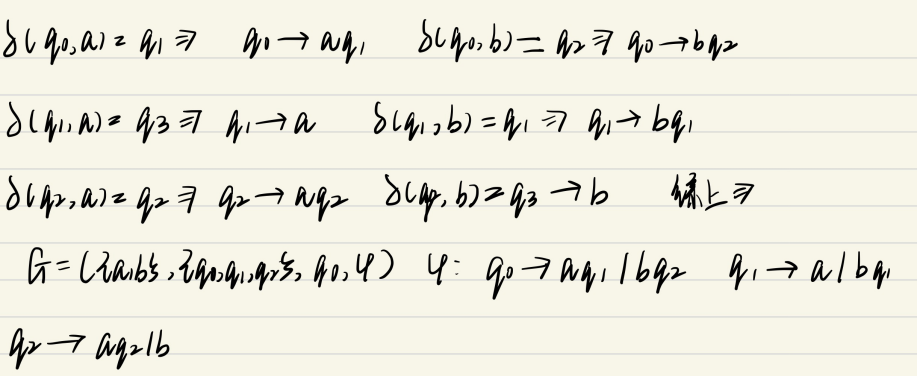 δ(q₀,a)=q₁ ⇒ q₀→aq₁ δ(q₀,b)=q₂ ⇒ q₀→bq₂
δ(q₁,a)=q₃ ⇒ q₁→a δ(q₁,b)=q₁ ⇒ q₁→bq₁
δ(q₂,a)=q₂ ⇒ q₂→aq₂ δ(q₂,b)=q₃→b 综上⇒
G=({a,b},{q₀,q₁,q₂},q₀,φ) φ: q₀→aq₁|bq₂ q₁→a|bq₁
q₂→aq₂|b